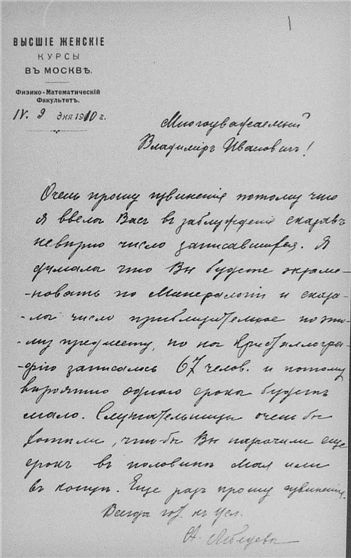 1
ВЫСШІЕ ЖЕНСКІЕ
КУРСЫ
ВЪ МОСКВѢ.
Физико-Математическій
Факультетъ.
IV. 9 дня 1910 г.
Многоуважаемый
Владиміръ Ивановичъ!
Очень прошу извиненія потому что
я ввела Васъ въ заблужденіе сказавъ
невѣрно число записавшихся. Я
думала что Вы будете экзаме-
новать по Минералогіи и сказа-
ла число приблизительное по э-
тому предмету, но на Кристаллогра-
фію записалось 67 челов. и потому
вѣроятно одного срока будетъ
мало. Слушательницы очень бы
хотѣли, чтобы Вы назначили еще
срокъ въ половинѣ мая или
въ концѣ. Еще разъ прошу извиненія.
Всегда гот. къ усл.
А. Лебедева